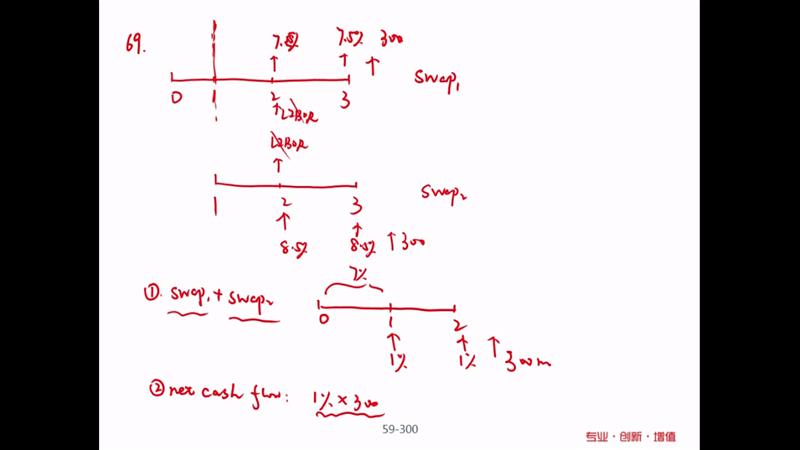 69.
7.5% 7.5% 300
0 1 2 3 swap₁
LIBOR
LIBOR
1 2 3 swap₂
8.5% 8.5% 300
7%
①. swap₁ + swap₂
0 1 2
1% 1% 300m
② net cash flow: 1% × 300
59-300
专业·创新·增值